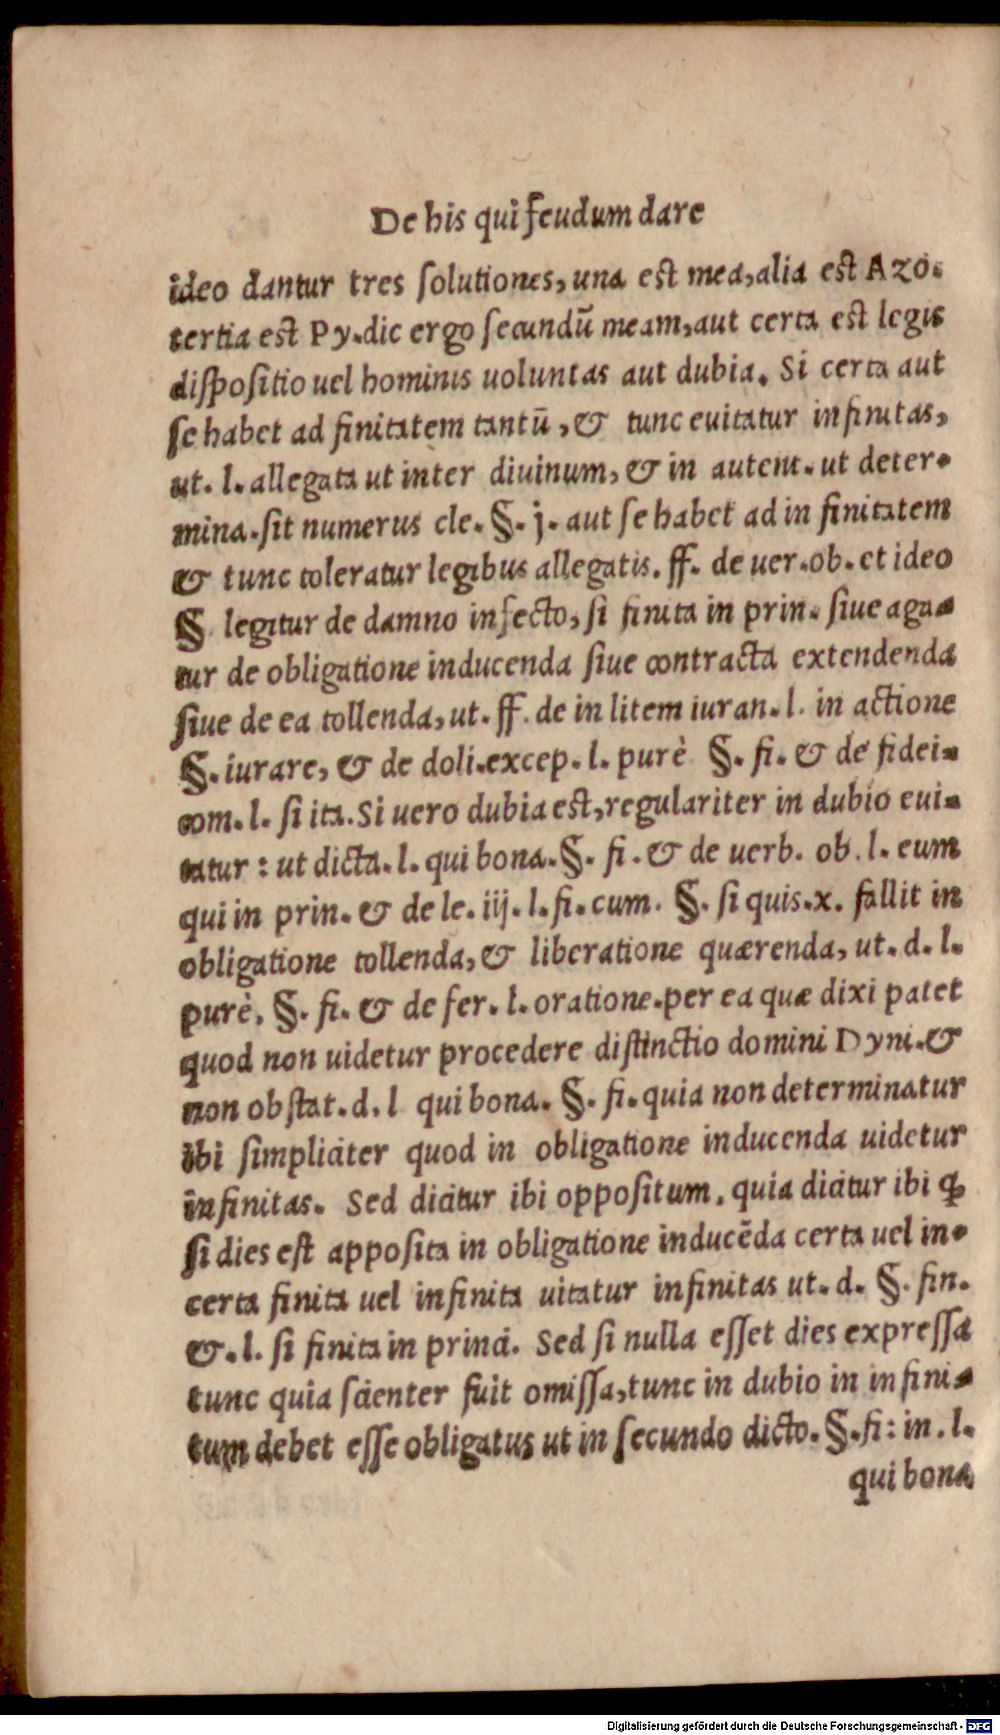 De his qui feudum dare
ideo dantur tres ſolutiones, una eſt mea, alia eſt Azo.
tertia eſt Py. dic ergo ſecundū meam, aut certa eſt legis
diſpoſitio uel hominis uoluntas aut dubia. Si certa aut
ſe habet ad finitatem tantū, & tunc euitatur infinitas,
ut. l. allegata ut inter diuinum, & in autent. ut deter-
mina. ſit numerus cle. §. j. aut ſe habet ad in finitatem
& tunc toleratur legibus allegatis. ff. de uer. ob. et ideo
§ legitur de damno infecto, ſi finita in prin. ſiue aga-
tur de obligatione inducenda ſiue contracta extendenda
ſiue de ea tollenda, ut. ff. de in litem iuran. l. in actione
§. iurare, & de doli. excep. l. purè §. fi. & de fidei-
com. l. ſi ita. Si uero dubia eſt, regulariter in dubio eui-
tatur : ut dicta. l. qui bona. §. fi. & de uerb. ob. l. eum
qui in prin. & de le. iij. l. fi. cum. §. ſi quis. x. fallit in
obligatione tollenda, & liberatione quærenda, ut. d. l.
purè. §. fi. & de fer. l. oratione. per ea quæ dixi patet
quod non uidetur procedere diſtinctio domini Dyni. &
non obſtat. d. l qui bona. §. fi. quia non determinatur
ibi ſimpliciter quod in obligatione inducenda uidetur
infinitas. Sed dicitur ibi oppoſitum, quia dicitur ibi ꝙ
ſi dies eſt appoſita in obligatione inducēda certa uel in-
certa finita uel infinita uitatur infinitas ut. d. §. fin.
&. l. ſi finita in princi. Sed ſi nulla eſſet dies expreſſa
tunc quia ſcienter fuit omiſſa, tunc in dubio in infini-
tum debet eſſe obligatus ut in ſecundo dicto. §. fi: in. l.
qui bona
Digitalisierung gefördert durch die Deutsche Forschungsgemeinschaft - DFG